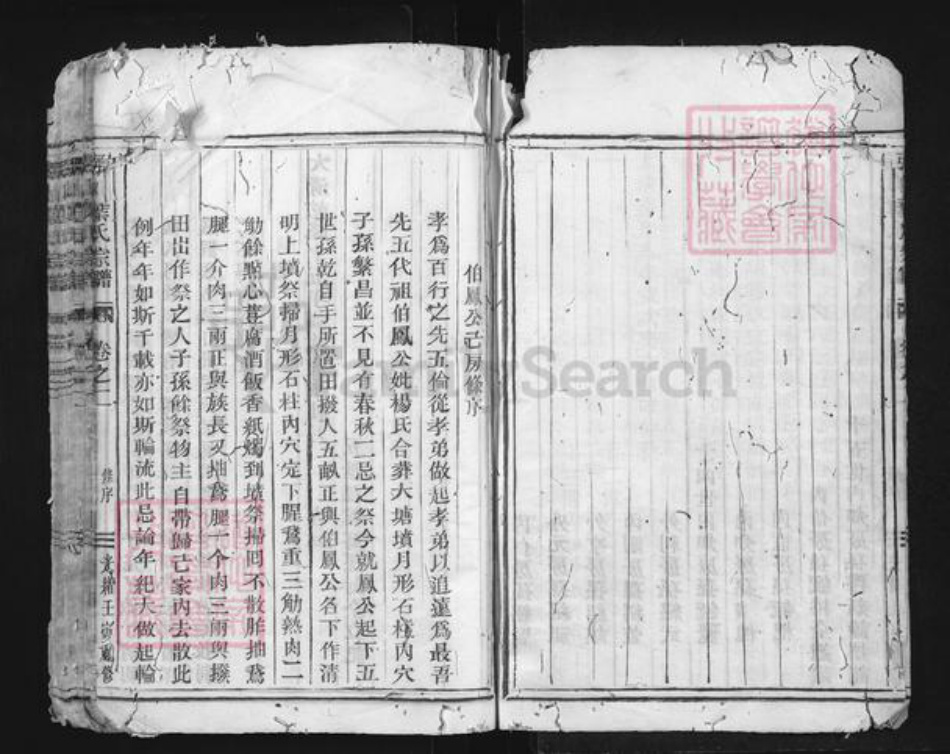 伯鳳公己房修序
孝為百行之先五倫從孝弟做起孝弟以追遠為最吾
先五代祖伯鳳公妣楊氏合葬大塘墳月形石樁內穴
子孫繁昌並不見有春秋二忌之祭今就鳳公起下五
世孫乾自手所置田撥人五畝正與伯鳳公名下作清
明上墳祭掃月形石柱內穴定下腥鵞重三觔熟肉二
觔餘點心荳腐酒飯香紙燭到墳祭掃回不散胙抽鵞
腿一介肉三兩正與族長又抽鵞腿一个肉三兩與撥
田出作祭之人子孫餘祭物主自帶歸己家內去散此
例年年如斯千載亦如斯輪流此忌論年紀大做起輪
葉氏宗譜
卷之二
修序
光緒壬寅重修
FamilySearch